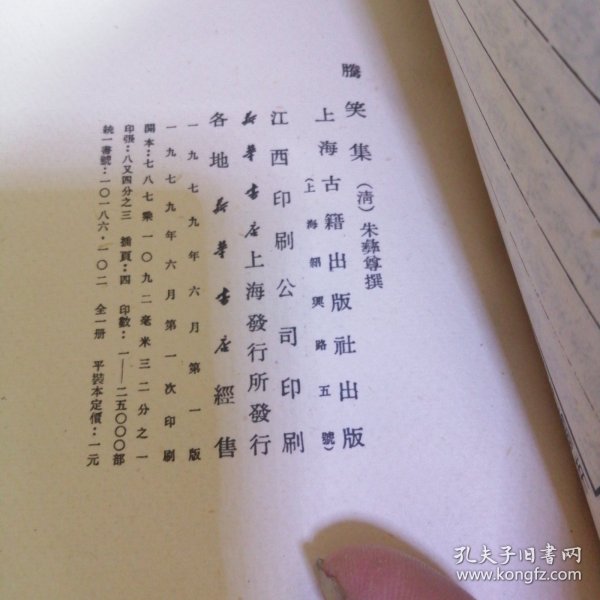 騰笑集（清）朱彝尊撰
上海古籍出版社出版
（上海紹興路五號）
江西印刷公司印刷
新華書店上海發行所發行
各地新華書店經售
一九七九年六月第一版
一九七九年六月第一次印刷
開本：七八七乘一〇九二毫米三二分之一
印張：八又四分之三　插頁：四　印數：一——二五〇〇〇部
統一書號：一〇一八六·一〇二　全一册　平裝本定價：一元
孔夫子旧书网
www.kongfz.com